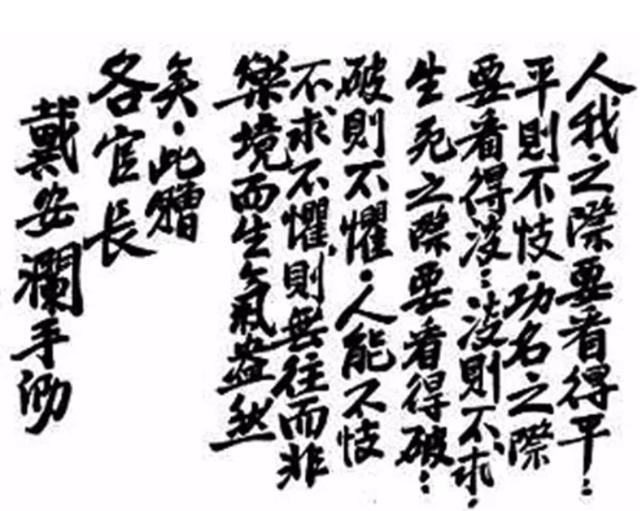 人我之際要看得平：
平則不忮．功名之際
要看得淡：淡則不求．
生死之際要看得破：
破則不懼．人能不忮
不求不懼，則無往而非
樂境而生氣盎然
矣．此贈
各官長
戴安瀾手泐